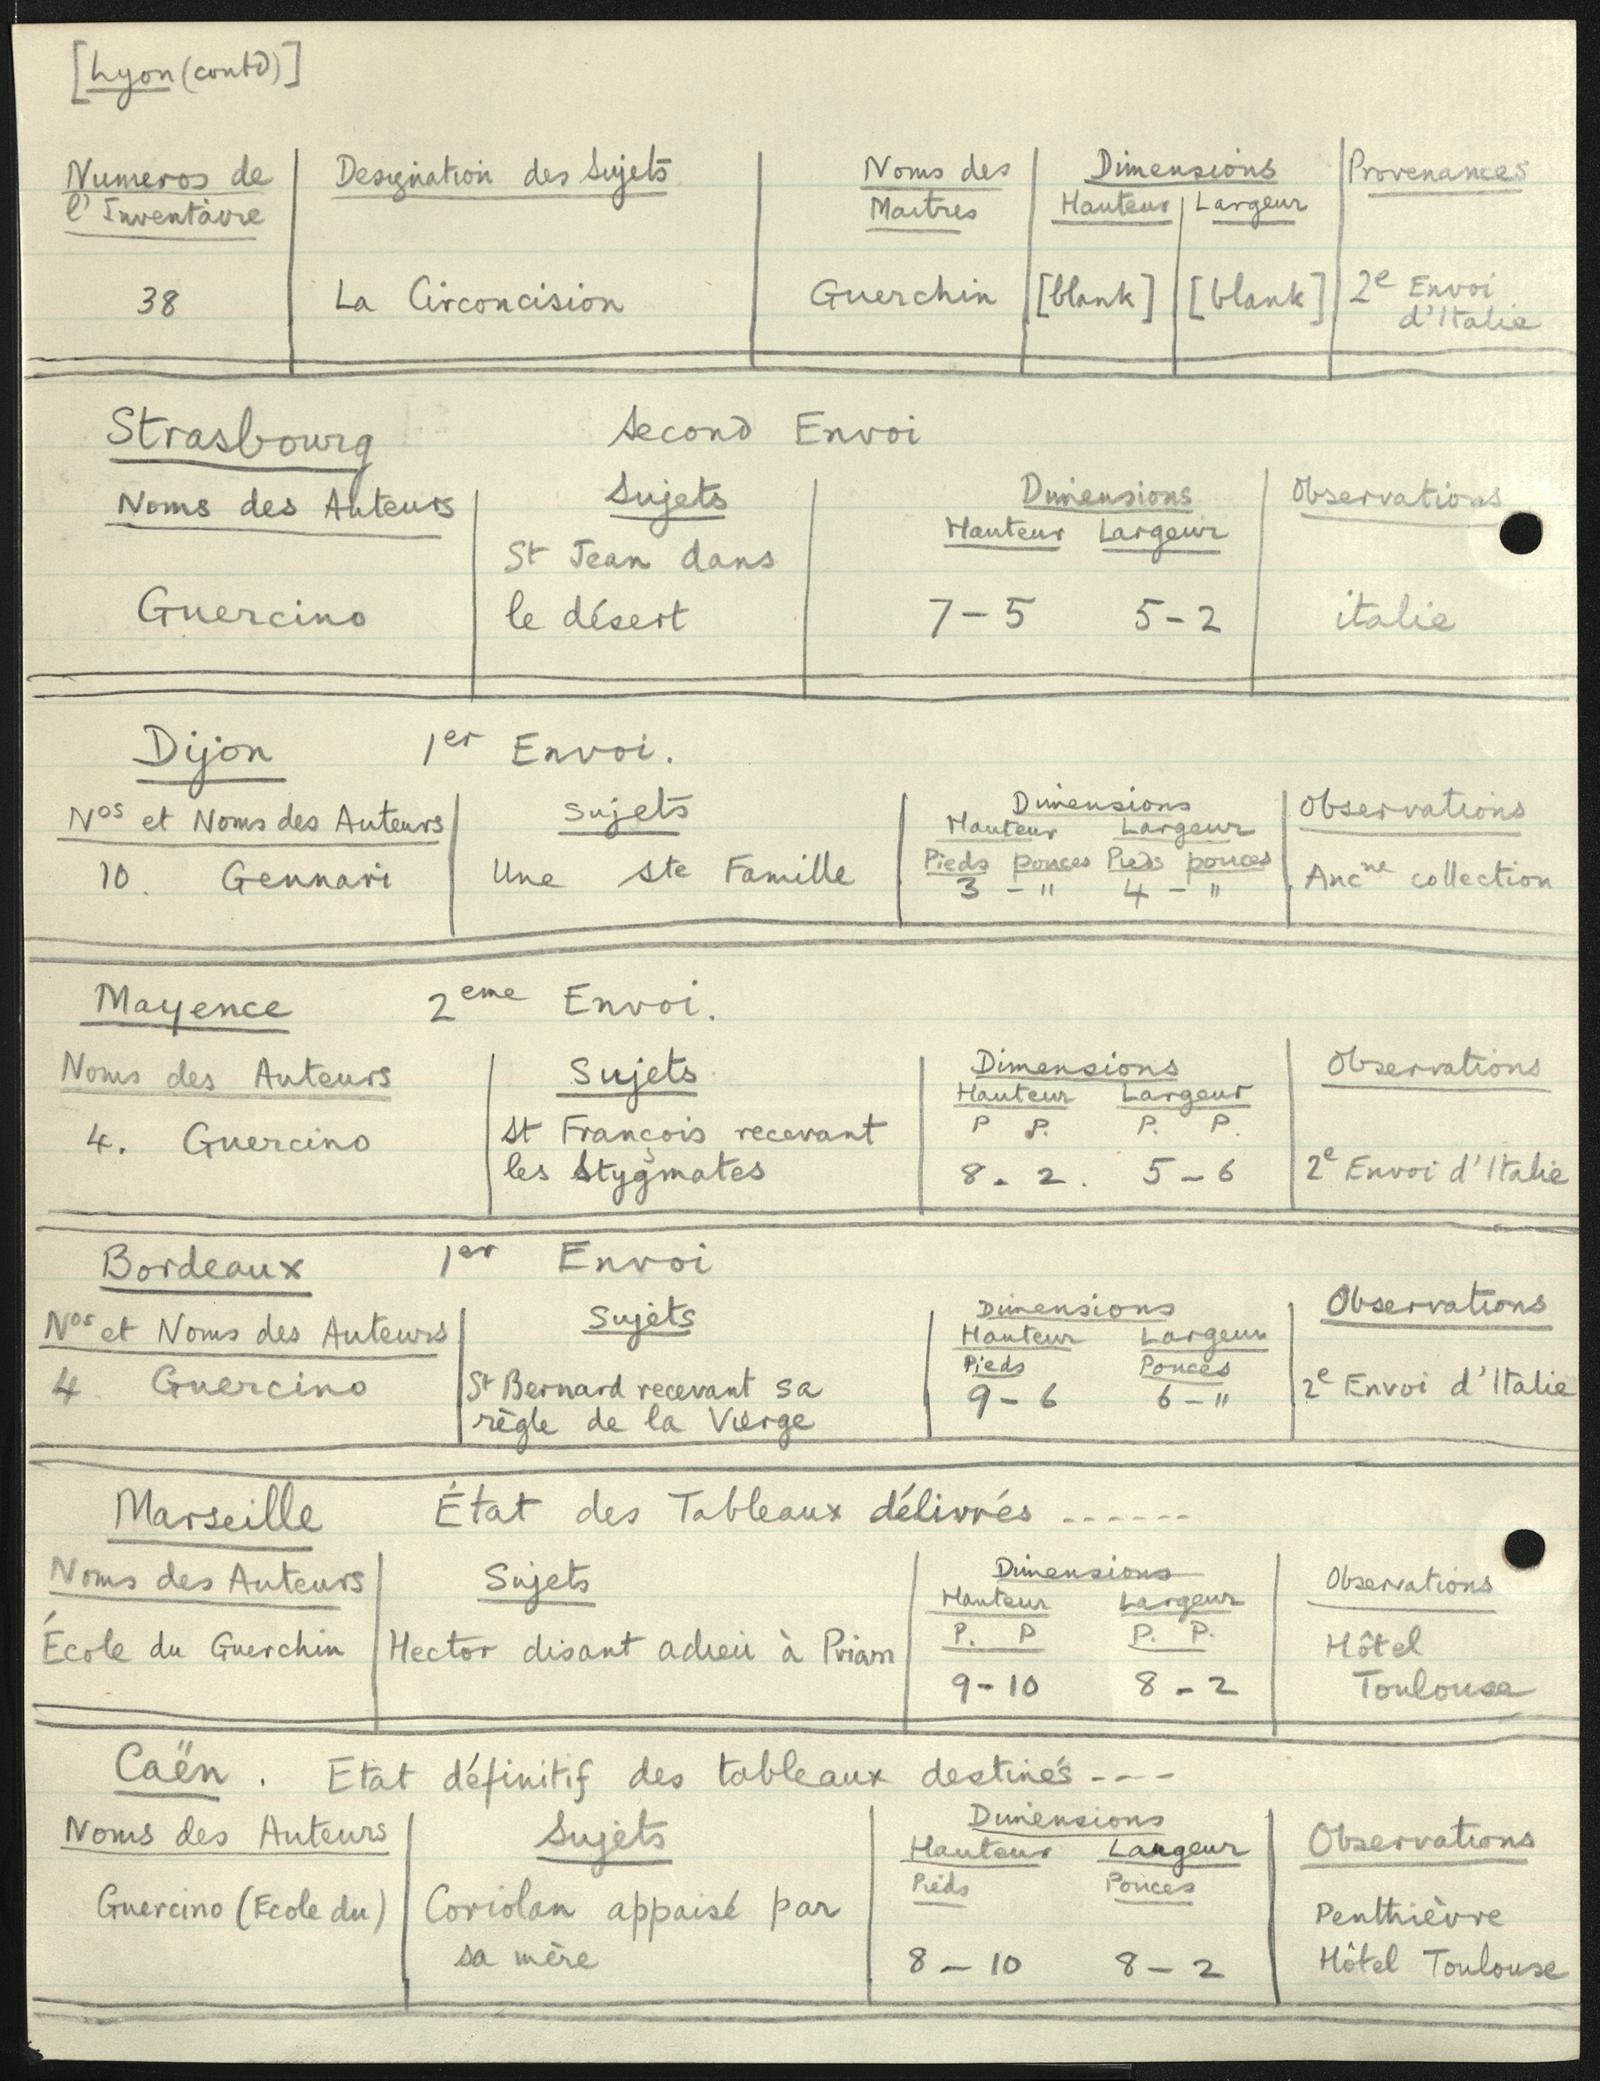 [Lyon (contd)]
Numeros de | Designation des Sujets | Noms des | Dimensions | Provenances
l'Inventaire | Maitres | Hauteur | Largeur
38 | La Circoncision | Guerchin | [blank] | [blank] | 2e Envoi
d'Italie
Strasbourg Second Envoi
Noms des Auteurs | Sujets | Dimensions | Observations
Hauteur Largeur
St Jean dans
Guercino | le désert | 7-5 5-2 | italie
Dijon 1er Envoi.
Nos et Noms des Auteurs | Sujets | Dimensions | Observations
Hauteur Largeur
Pieds pouces Pieds pouces
10. Gennari | Une Ste Famille | 3 - " 4 - " | Ancne collection
Mayence 2eme Envoi.
Noms des Auteurs | Sujets | Dimensions | Observations
Hauteur Largeur
P P. P. P.
4. Guercino | St François recevant
les Stygmates | 8. 2. 5-6 | 2e Envoi d'Italie
Bordeaux 1er Envoi
Nos et Noms des Auteurs | Sujets | Dimensions | Observations
Hauteur Largeur
Pieds Pouces
4 Guercino | St Bernard recevant sa | 9-6 6-" | 2e Envoi d'Italie
règle de la Vierge
Marseille État des Tableaux délivrés ------
Noms des Auteurs | Sujets | Dimensions | Observations
Hauteur Largeur
P. P P. P.
École du Guerchin | Hector disant adieu à Priam | Hôtel
9-10 8-2 | Toulouse
Caën. Etat définitif des tableaux destinés ---
Noms des Auteurs | Sujets | Dimensions | Observations
Hauteur Largeur
Pieds Pouces
Guercino (Ecole du) | Coriolan appaisé par | Penthièvre
sa mère | 8-10 8-2 | Hôtel Toulouse